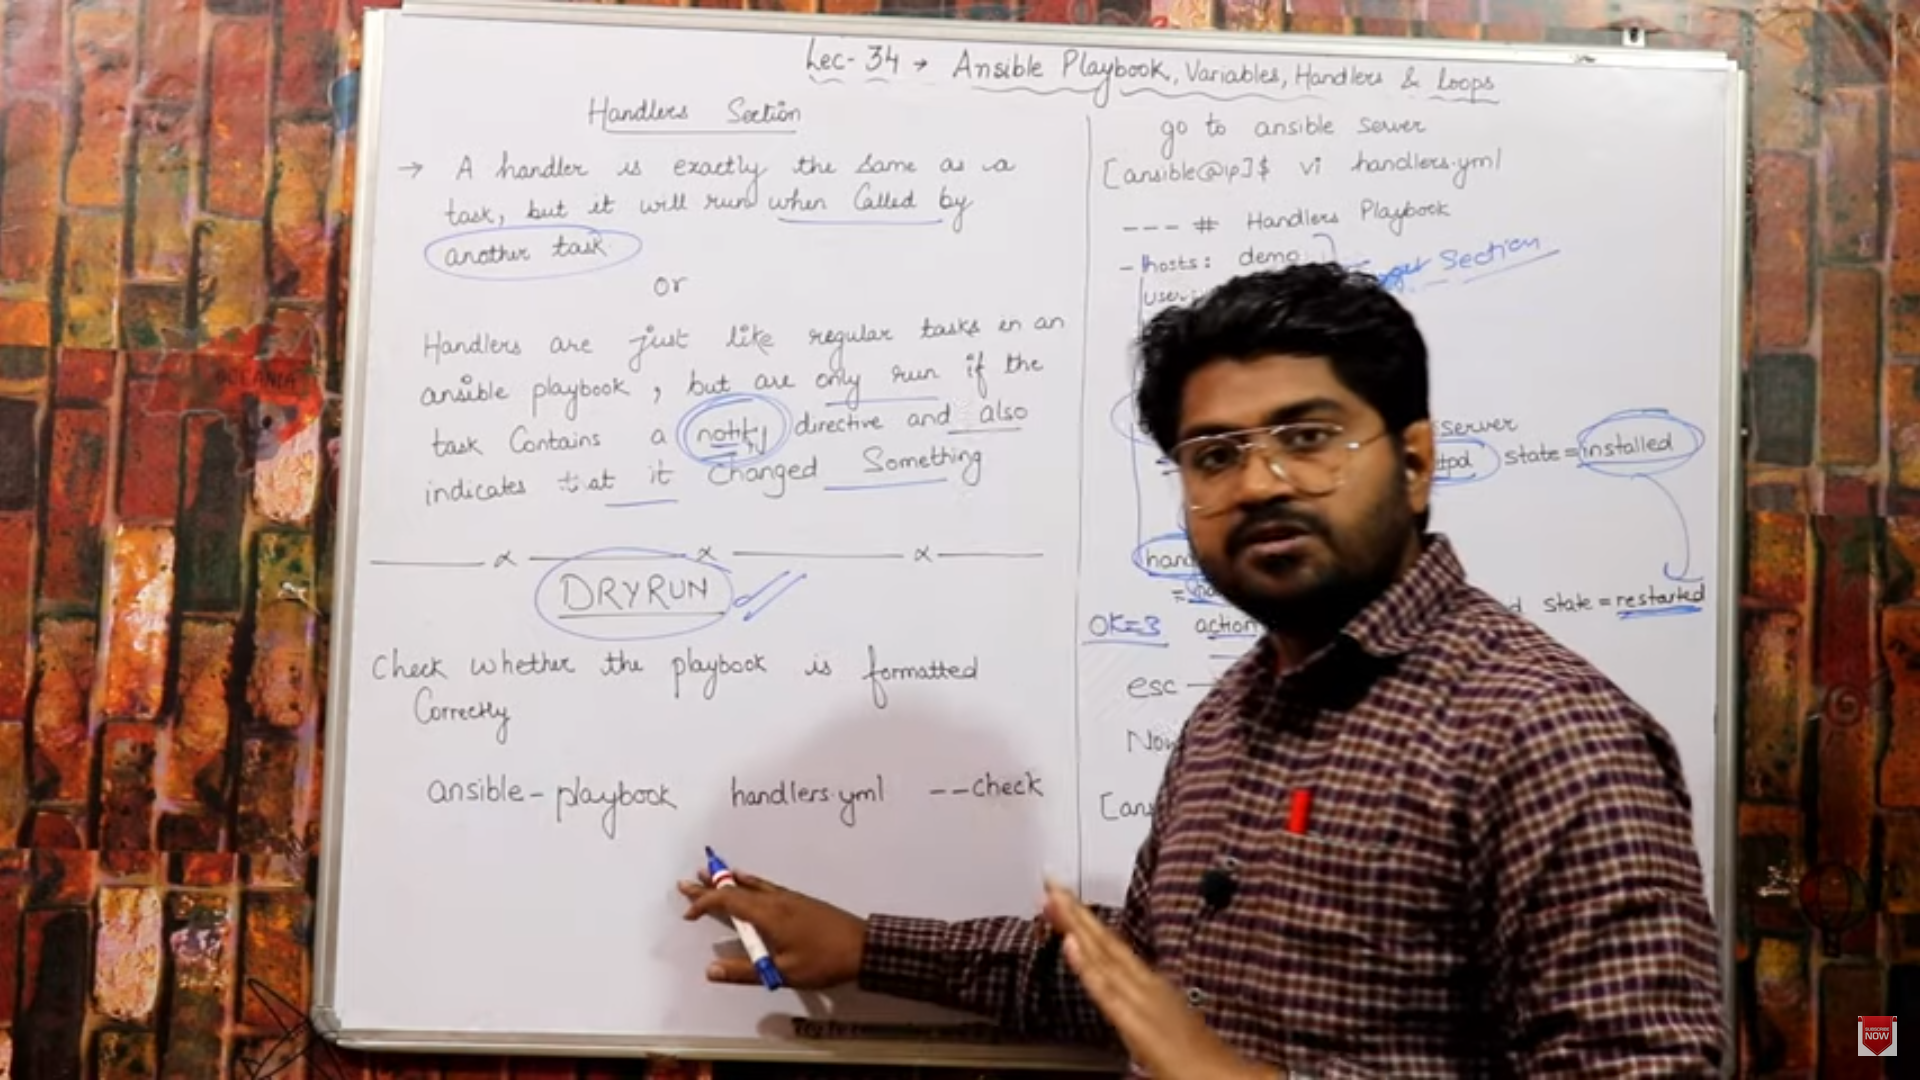 Lec- 34 → Ansible Playbook, Variables, Handlers & Loops
Handlers Section
→ A handler is exactly the same as a
task, but it will run when Called by
another task
or
Handlers are just like regular tasks in an
ansible playbook, but are only run if the
task Contains a notify directive and also
indicates that it changed Something
DRYRUN
Check whether the playbook is formatted
Correctly
ansible-playbook handlers.yml --check
go to ansible server
[ansible@ip]$ vi handlers.yml
--- # Handlers Playbook
- hosts: demo
Section
server
state = installed
state = restarted
OK=3 action
esc
SUBSCRIBE
NOW
OCEANIA